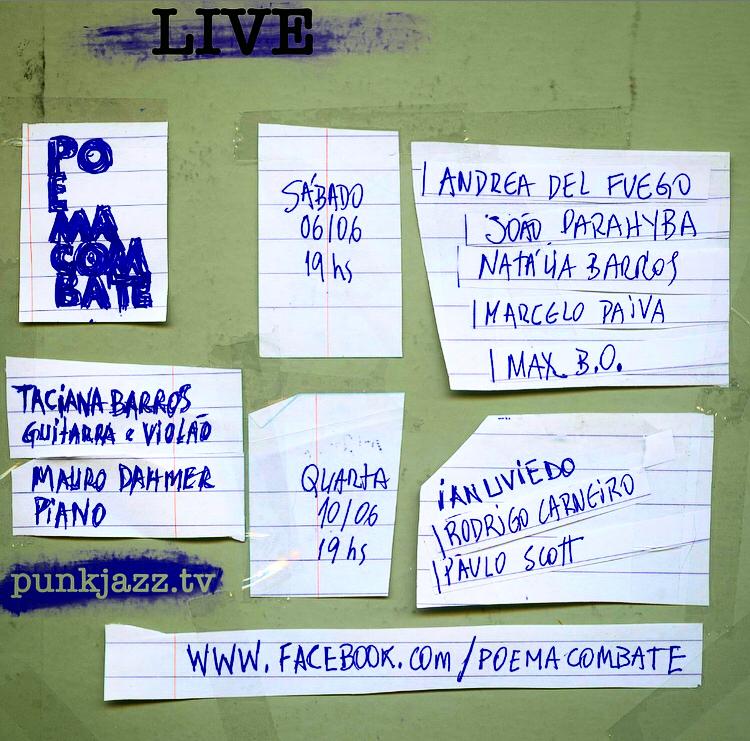 LIVE
PO
E
MA
COM
BATE
SÁBADO
06/06
19 hs
| ANDREA DEL FUEGO
| JOÃO PARAHYBA
| NATÁLIA BARROS
| MARCELO PAIVA
| MAX B.O.
TACIANA BARROS
GUITARRA e VIOLÃO
MAURO DAHMER
PIANO
QUARTA
10/06
19 hs
IAN UVIEDO
| RODRIGO CARNEIRO
| PAULO SCOTT
punkjazz.tv
WWW.FACEBOOK.COM/POEMACOMBATE